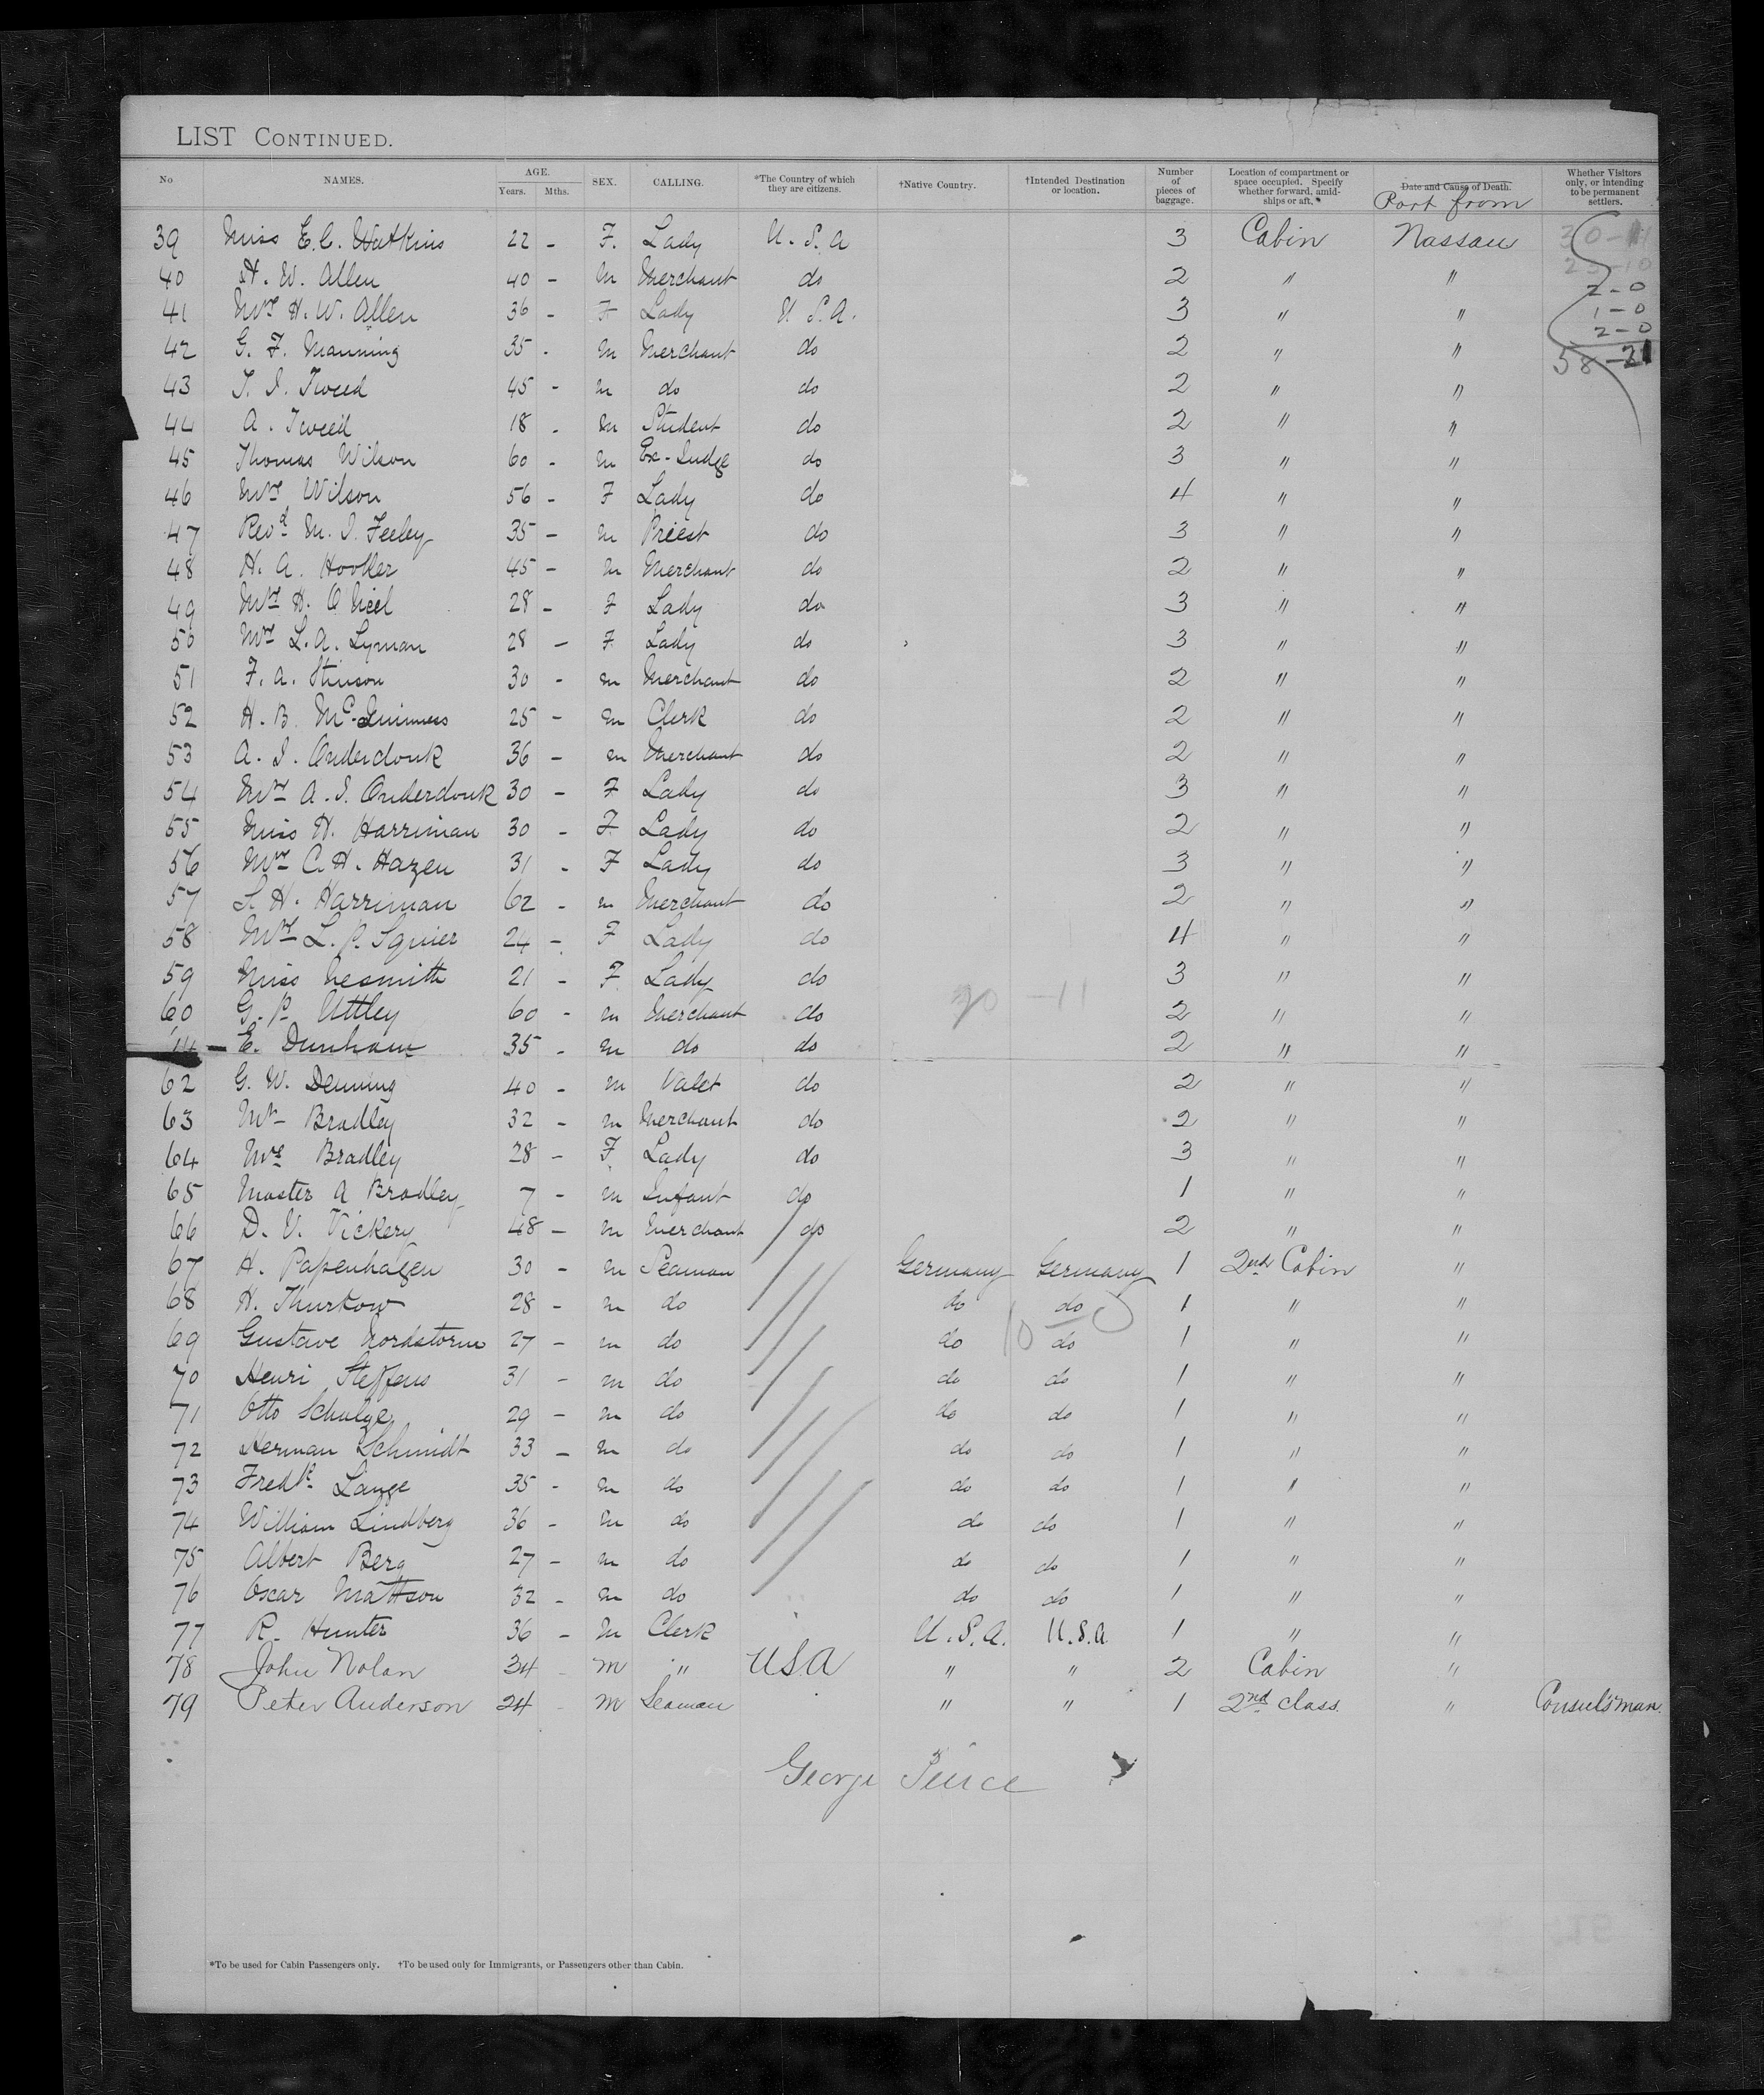 LIST CONTINUED.
No NAMES. AGE. Years. Mths. SEX. CALLING. *The Country of which they are citizens. †Native Country. †Intended Destination or location. Number of pieces of baggage. Location of compartment or space occupied. Specify whether forward, amidships or aft. Date and Cause of Death. Whether Visitors only, or intending to be permanent settlers.
Port from
39 Miss E.C. Watkins 22 - F. Lady U.S.A 3 Cabin Nassau 30-11
40 H. W. Allen 40 - M Merchant do 2 " " 23-10
2-0
41 Mrs H. W. Allen 36 - F Lady U.S.A. 3 " " 1-0
2-0
42 G. F. Manning 35 - M Merchant do 2 " " 58-21
43 T. I. Tweed 45 - M do do 2 " "
44 A. Tweed 18 - M Student do 2 " "
45 Thomas Wilson 60 - M Ex-Judge do 3 " "
46 Mrs Wilson 56 - F Lady do 4 " "
47 Revd M. I. Feeley 35 - M Priest do 3 " "
48 H. A. Hooker 45 - M Merchant do 2 " "
49 Mrs H. O Neel 28 - F Lady do 3 " "
50 Mrs L. A. Lyman 28 - F Lady do 3 " "
51 F. A. Stinson 30 - M Merchant do 2 " "
52 H. B. 25 - M Clerk do 2 " "
53 A. I. Onderdonk 36 - M Merchant do 2 " "
54 Mrs A. I. Onderdonk 30 - F Lady do 3 " "
55 Miss H. Harriman 30 - F Lady do 2 " "
56 Mrs C. H. Hazen 31 - F Lady do 3 " "
57 H. Harriman 62 - M Merchant do 2 " "
58 Mrs L. P. Squier 24 - F Lady do 4 " "
59 Miss Nesmith 21 - F Lady do 3 " "
60 G. P. Uttley 60 - M Merchant do 2 " "
-11
E. Dunham 35 - M do do 2 " "
62 G. W. Denning 40 - M Valet do 2 " "
63 Mr Bradley 32 - M Merchant do 2 " "
64 Mrs Bradley 28 - F Lady do 3 " "
65 Master A Bradley 7 - M Infant do 1 " "
66 D. V. Vickery 48 - M Merchant do 2 " "
67 H. Papenhagen 30 - M Seaman Germany Germany 1 2nd Cabin "
68 H. Thurkow 28 - M do do do 1 " "
10 0
69 Gustave Nordstorm 27 - M do do do 1 " "
70 Henri Steffens 31 - M do do do 1 " "
71 Otto Schulze 29 - M do do do 1 " "
72 Herman Schmidt 33 - M do do do 1 " "
73 Fredk Lange 35 - M do do do 1 " "
74 William Lindberg 36 - M do do do 1 " "
75 Albert Berg 27 - M do do do 1 " "
76 Oscar Mattson 32 - M do do do 1 " "
77 R. Hunter 36 - M Clerk U.S.A. U.S.A. 1 " "
78 John Nolan 34 - M " USA " " 2 Cabin "
79 Peter Anderson 24 - M Seaman " " 1 2nd class. " Consul's man.
George Peirce
*To be used for Cabin Passengers only. †To be used only for Immigrants, or Passengers other than Cabin.